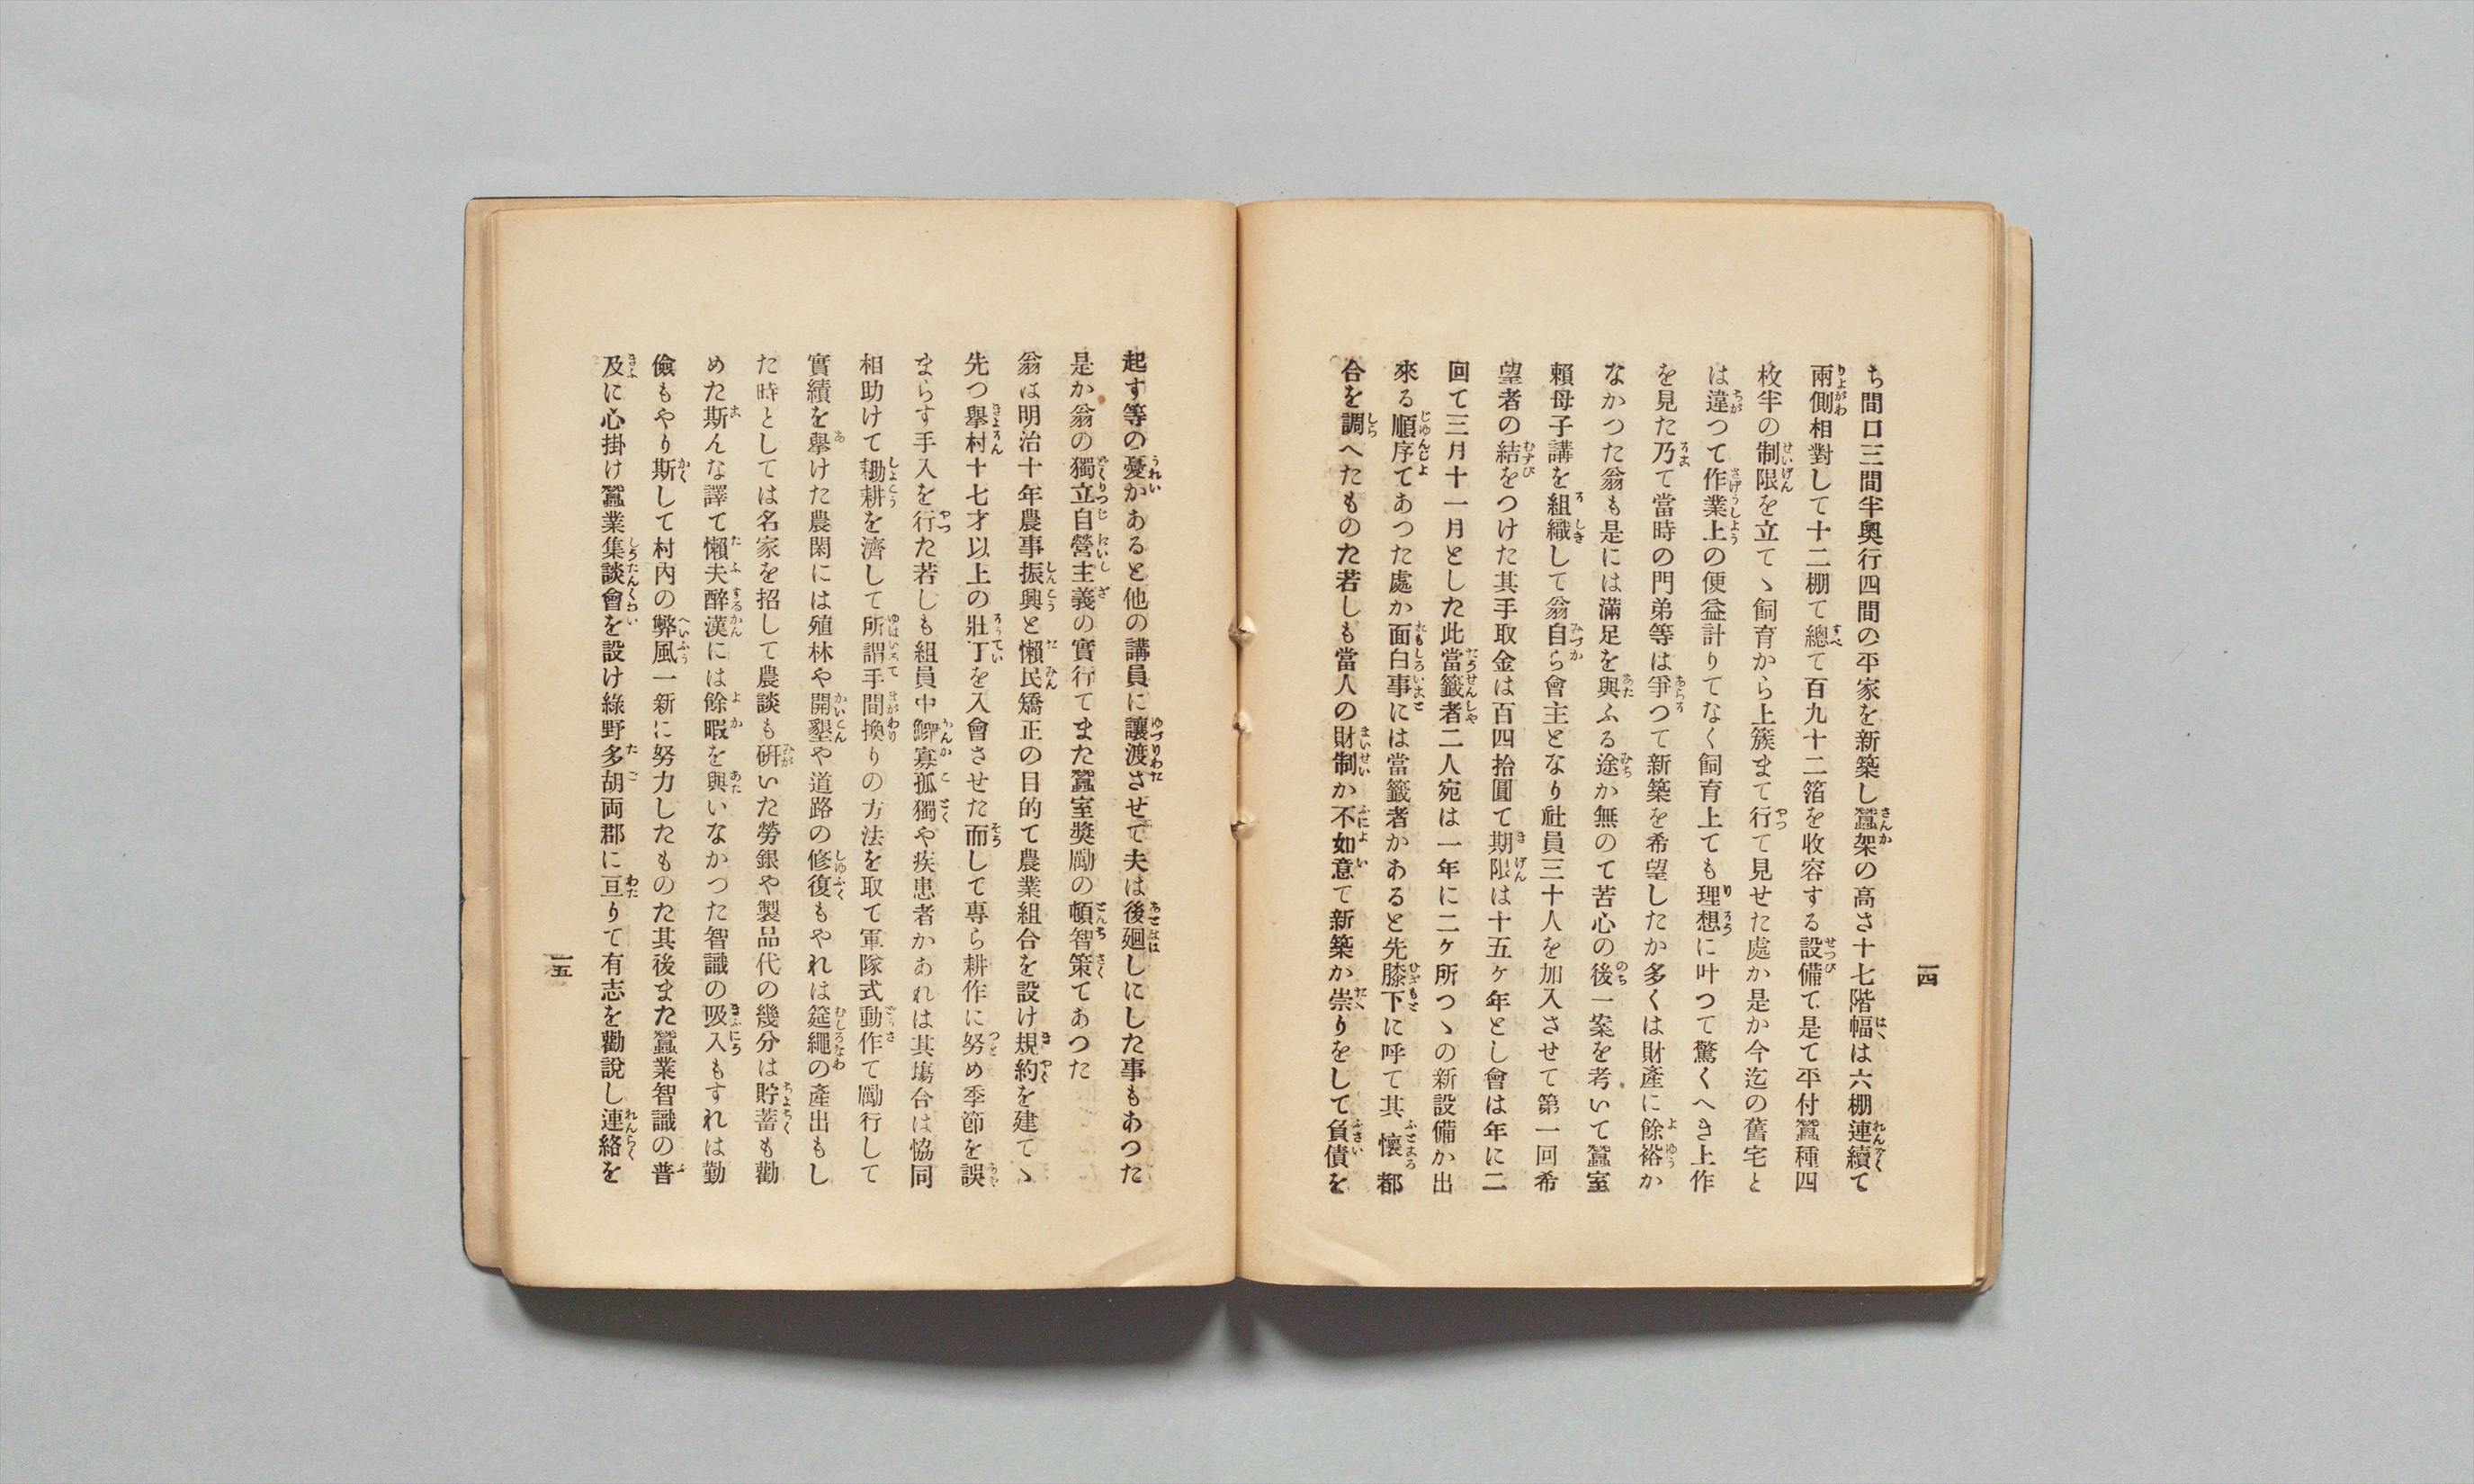 一四
ち間口三間半奧行四間の平家を新築し蠶架の高さ十七階幅は六棚連續て
兩側相對して十二棚て總て百九十二箔を收容する設備て是て平付蠶種四
枚半の制限を立てヽ飼育から上簇まて行て見せた處か是か今迄の舊宅と
は違つて作業上の便益計りてなく飼育上ても理想に叶つて驚くへき上作
を見た乃て當時の門弟等は爭つて新築を希望したか多くは財產に餘裕か
なかつた翁も是には滿足を與ふる途か無のて苦心の後一案を考いて蠶室
賴母子講を組織して翁自ら會主となり社員三十人を加入させて第一回希
望者の結をつけた其手取金は百四拾圓て期限は十五ヶ年とし會は年に二
回て三月十一月とした此當籤者二人宛は一年に二ヶ所つヽの新設備か出
來る順序てあつた處か面白事には當籤者かあると先膝下に呼て其懷都
合を調へたものた若しも當人の財制か不如意て新築か崇りをして負債を
起す等の憂かあると他の講員に讓渡させて夫は後廻しにした事もあつた
是か翁の獨立自營主義の實行てまた蠶室奬勵の頓智策てあつた
翁は明治十年農事振興と懶民矯正の目的て農業組合を設け規約を建てヽ
先つ擧村十七才以上の壯丁を入會させた而して專ら耕作に努め季節を誤
まらす手入を行た若しも組員中鰥寡孤獨や疾患者かあれは其塲合は恊同
相助けて耡耕を濟して所謂手間換りの方法を取て軍隊式動作て勵行して
實績を擧けた農閑には殖林や開墾や道路の修復もやれは筵繩の產出もし
た時としては名家を招して農談も硏いた勞銀や製品代の幾分は貯蓄も勸
めた斯んな譯て懶夫醉漢には餘暇を與いなかつた智識の吸入もすれは勤
儉もやり斯して村內の弊風一新に努力したものた其後また蠶業智識の普
及に心掛け蠶業集談會を設け綠野多胡両郡に亘りて有志を勸說し連絡を
一五